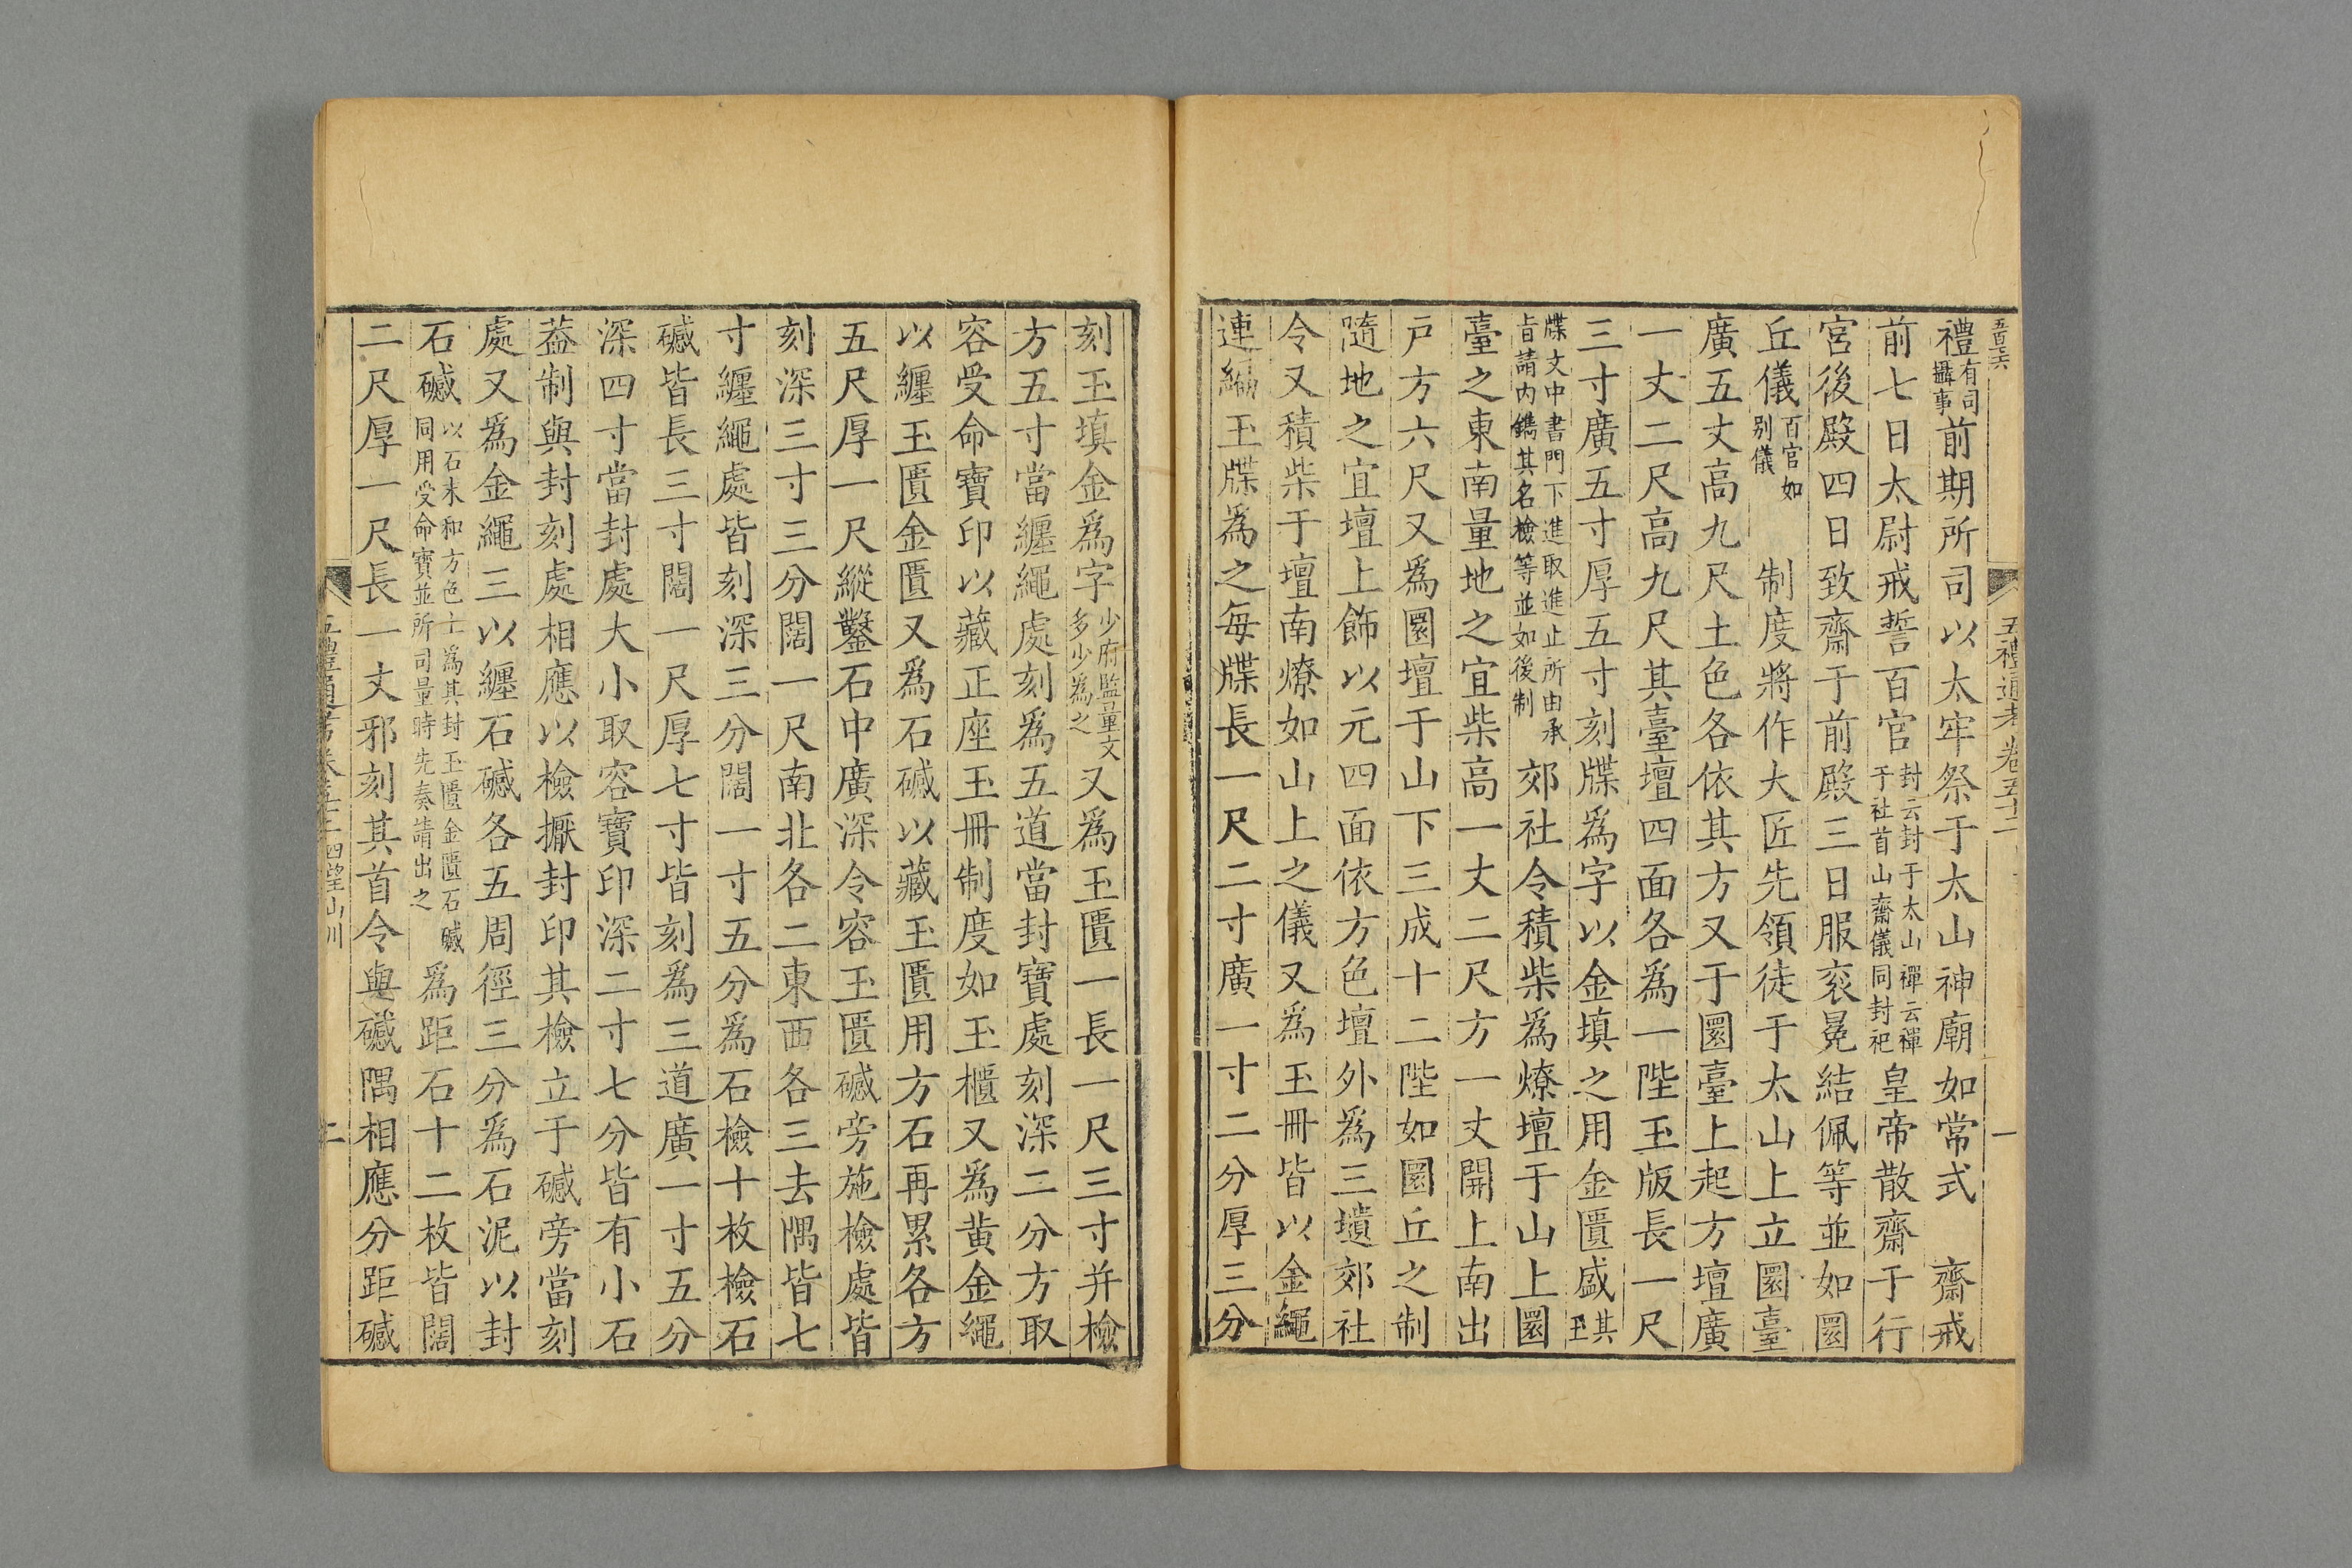 五禮通考卷五十二
一
禮有司攝事前期所司以太牢祭于太山神廟如常式　齋戒
前七日太尉戒誓百官封云封于太山禪云禪于社首山齋儀同封祀皇帝散齋于行
宮後殿四日致齋于前殿三日服衮冕結佩等並如圜
丘儀百官如別儀　制度將作大匠先領徒于太山上立圜臺
廣五丈高九尺土色各依其方又于圜臺上起方壇廣
一丈二尺高九尺其臺壇四面各爲一陛玉版長一尺
三寸廣五寸厚五寸刻牒爲字以金填之用金匱盛其玉
牒文中書門下進取進止所由承旨請内鐫其名檢等並如後制郊社令積柴爲燎壇于山上圜
臺之東南量地之宜柴高一丈二尺方一丈開上南出
戸方六尺又爲圜壇于山下三成十二陛如圜丘之制
隨地之宜壇上飾以元四面依方色壇外爲三壝郊社
令又積柴于壇南燎如山上之儀又爲玉冊皆以金繩
連編玉牒爲之每牒長一尺二寸廣一寸二分厚三分
刻玉填金爲字少府監量文多少爲之又爲玉匱一長一尺三寸并檢
方五寸當纏繩處刻爲五道當封寶處刻深二分方取
容受命寶印以藏正座玉冊制度如玉櫃又爲黄金繩
以纏玉匱金匱又爲石䃭以藏玉匱用方石再累各方
五尺厚一尺縱鑿石中廣深令容玉匱䃭旁施檢處皆
刻深三寸三分闊一尺南北各二東西各三去隅皆七
寸纏繩處皆刻深三分闊一寸五分爲石檢十枚檢石
䃭皆長三寸闊一尺厚七寸皆刻爲三道廣一寸五分
深四寸當封處大小取容寶印深二寸七分皆有小石
蓋制與封刻處相應以檢擫封印其檢立于䃭旁當刻
處又爲金繩三以纏石䃭各五周徑三分爲石泥以封
石䃭以石末和方色土爲其封玉匱金匱石䃭同用受命寶並所司量時先奏請出之爲距石十二枚皆闊
二尺厚一尺長一丈邪刻其首令與䃭隅相應分距䃭
五禮通考卷五十二四望山川
二